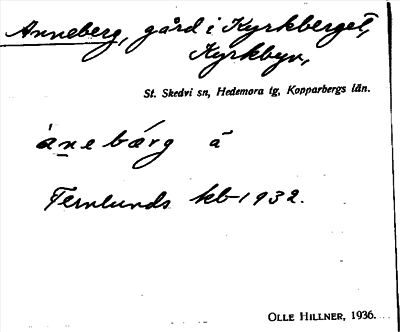 Anneberg, gård i Kyrkberget,
Kyrkbyn,
St. Skedvi sn, Hedemora tg, Kopparbergs län.
ànebárg ā
Ternlunds kb 1932.
OLLE HILLNER, 1936.